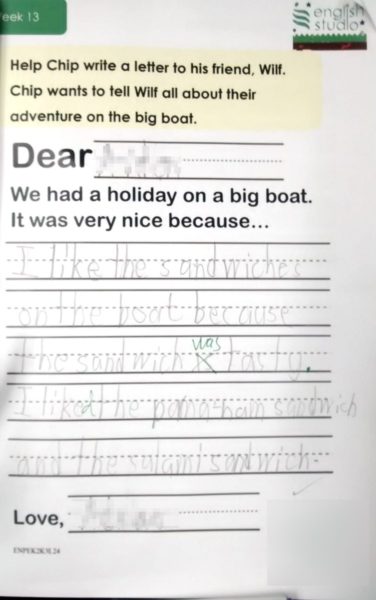 eek 13
english
studio
Help Chip write a letter to his friend, Wilf.
Chip wants to tell Wilf all about their
adventure on the big boat.
Dear
We had a holiday on a big boat.
It was very nice because...
I like the sandwiches
on the boat because
was
the sandwich tasty.
I liked the parma-ham sandwich
and the salami sandwich
Love,
ENPEK2K3L24